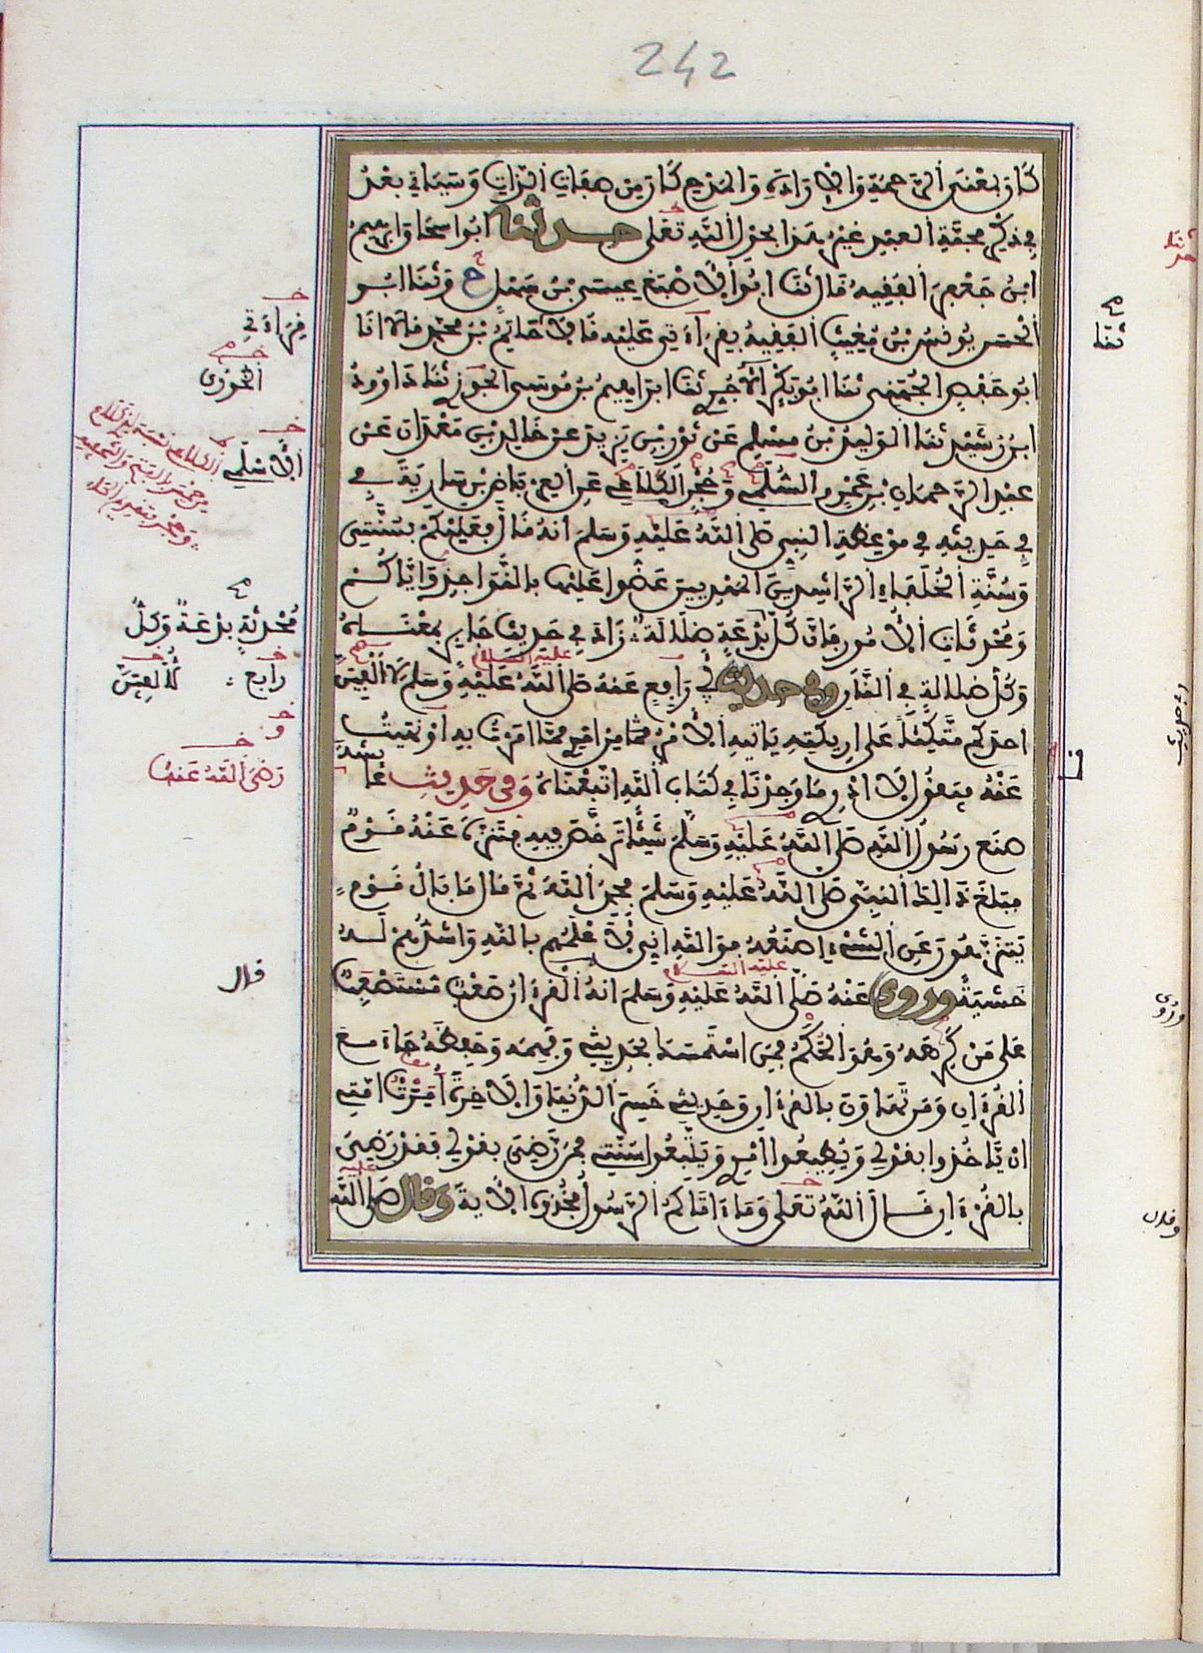 242
كان بمعنى الرحمة والارادة والمدح كان من صفات الذات وسياتي بعد
في ذكر محبة العبد غير هذا بحول الله تعلى حدثنا ابوا سحاق ابراهيم
ابن جعفر الفقيه قال ثنا ابوا الاصبغ عيسى بن سهل ح وثنا ابو
الحسن يونس بن مغيث الفقيه بقراءتي عليه قالا حاتم بن محمد قالا انا
ابو حفص الجهني ثنا ابو بكر الآجري ثنا ابراهيم بن موسى الجوزي ثنا داوود
ابن رشيد ثنا الوليد بن مسلم عن ثور بن يزيد عن خالد بن معدان عن
عبد الرحمان بن عمرو السلمي وحجر الكلاعي عن العرباض بن سارية في
في حديثه في موعظة النبي صلى الله عليه وسلم انه قال فعليكم بسنتي
وسنة الخلفاء الراشدين المهديين عضوا عليها بالنواجذ واياكم
ومحدثات الامور فان كل بدعة ضلالة زاد في حديث جابر بمعناه
وكل ضلالة في النار وفي حديث ابي رافع عنه صلى الله عليه وسلم لا الفين
عليه السلام
احدكم متكئا على اريكته ياتيه الامر مما من امري مما امرت به او نهيت
عنه فيقول لا ادري ما وجدنا في كتاب الله اتبعناه وفي حديث عائشة
صنع رسول الله صلى الله عليه وسلم شيئا ترخص فيه فتنزه عنه قوم
فبلغ ذالك النبي صلى الله عليه وسلم فحمد الله ثم قال ما بال قوم
يتنزهون عن الشيء اصنعه فوالله اني لأعلمهم بالله واشدهم له
خشية وروي عنه صلى الله عليه وسلم انه القرءان صعب مستصعب
عليه السلام
على من كرهه وهو الحكم فمن استمسك بحديثي وفهمه وحفظه جاء مع
القرءان ومن تهاون بالقرءان وحديثي خسر الدنيا والاخرة امرت امتي
ان ياخذوا بقولي ويطيعوا امري ويتبعوا سنتي فمن رضي بقولي فقد رضي
بالقرءان قال الله تعلى وما ءاتاكم الرسول فخذوه الاية وقال صلى الله
عليه
قراءتي
الجوزي
الاسلمي
محدثة بدعة وكل
رافع
لألفين
رضي الله عنها
قال
ثنا